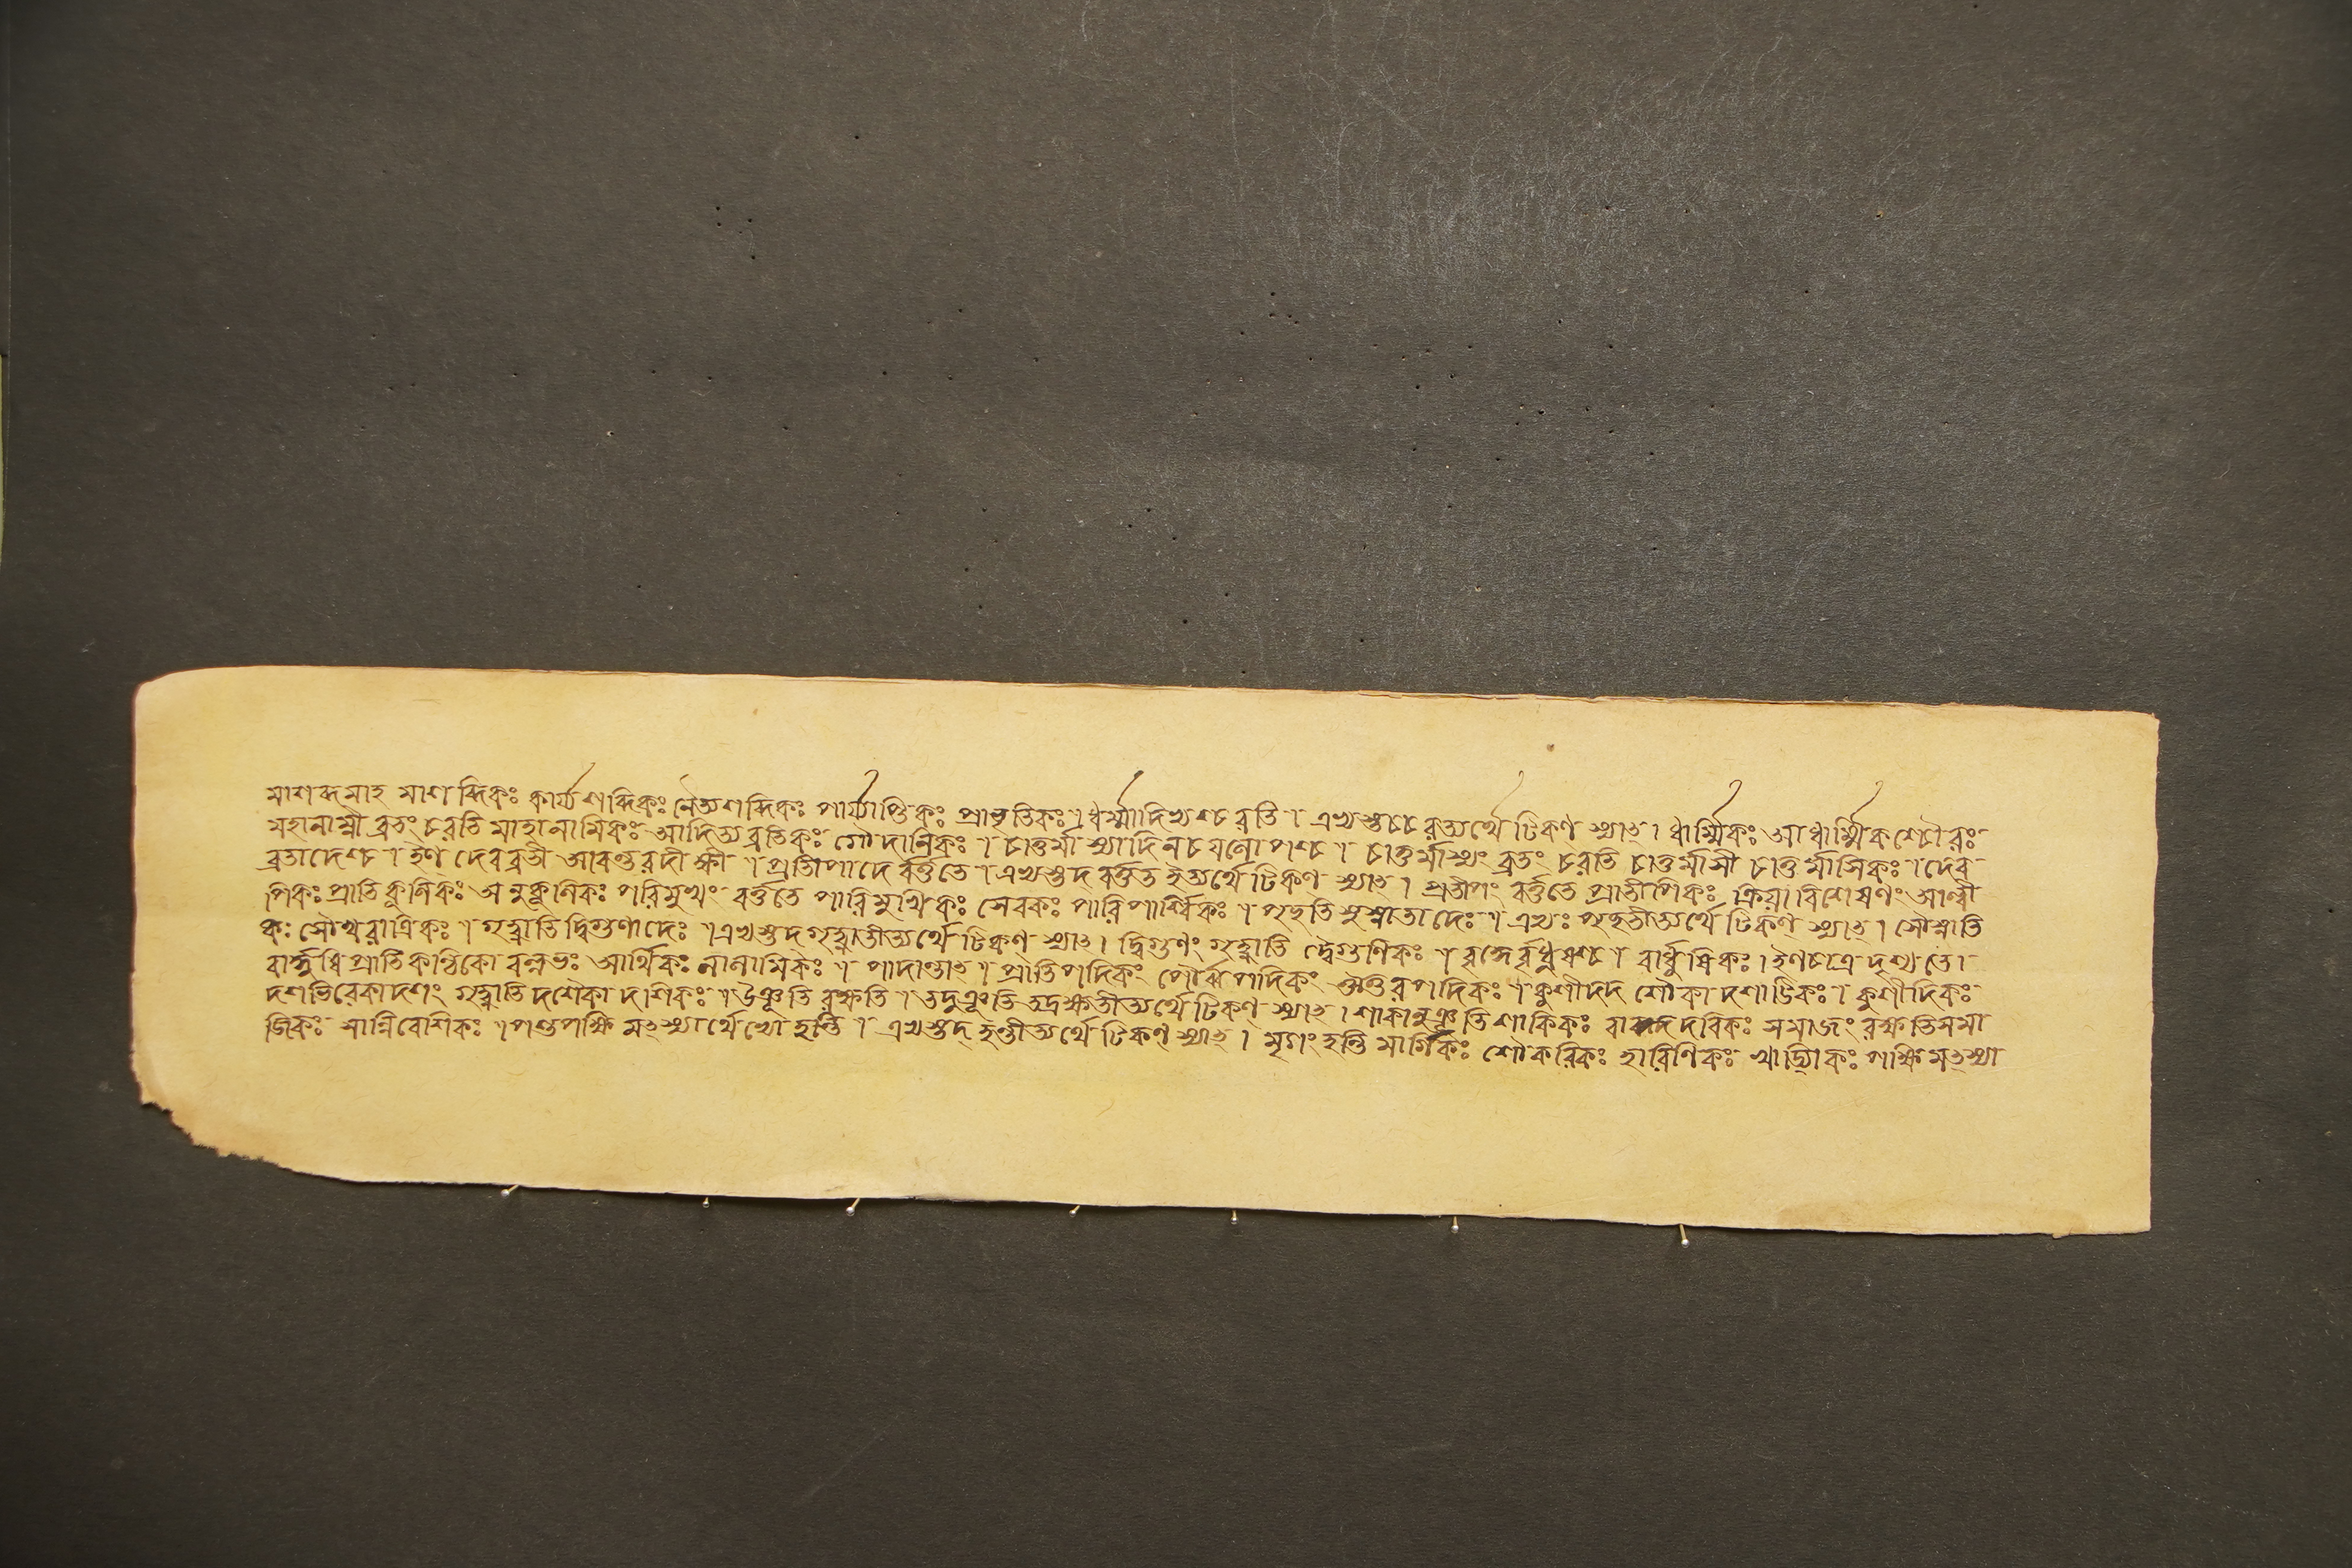 মাশব্দমাহ মাশব্দিকঃ কার্য্যশব্দিকঃ নৈত্যশব্দিকঃ পার্য্যাপ্তিকঃ প্রাভূতিকঃ। ধর্ম্মাদিভ্যশ্চরতি। এভ্যস্তচ্চরত্যর্থে টিকণ্ স্যাত্। ধার্ম্মিকঃ আধার্ম্মিকশ্চৌরঃ
মহানাম্নী ব্রতং চরতি মাহানামিকঃ আদিত্যব্রতিকঃ গৌদানিকঃ। চাতুর্মাস্যাদিন চযলোপশ্চ। চাতুর্মাস্যং ব্রতং চরতি চাতুর্মাসী চাতুর্মাসিকঃ। দেব
ব্রতাদেশ্চ। ইণ্ দেবব্রতী আবন্তরদীক্ষী। প্রতীপাদে বর্ত্ততে। এভ্যস্তদ বর্ত্তত ইত্যর্থে টিকণ্ স্যাত্। প্রতীপং বর্ত্ততে প্রাতীপিকঃ ক্রিয়াবিশেষণং আন্বী
পিকঃ প্রাতিকূলিকঃ অনুকূলিকঃ পরিমুখং বর্ত্ততে পারিমুখিকঃ সেবকঃ পারিপার্শ্বিকঃ। পৃচ্ছতি সুস্নাতাদেঃ। এভ্যঃ পৃচ্ছতীত্যর্থে টিকণ্ স্যাত্। সৌস্নাতি
কঃ সৌখরাত্রিকঃ। গৃহ্ণাতি দ্বিগুণাদেঃ। এভ্যস্তদ গৃহ্ণাতীত্যর্থে টিকণ্ স্যাত্। দ্বিগুণং গৃহ্ণাতি দ্বৈগুণিকঃ। বৃদ্ধের্বৃধুষশ্চ। বার্ধুষিকঃ। ইণচাত্র দৃশ্যতে।
বার্দ্ধুষি প্রাতিকণ্ঠিকো বল্লভঃ আর্থিকঃ লালামিকঃ। পাদান্তাত্। প্রাতিপদিকং পৌর্ব্বপদিকং ঔত্তরপদিকঃ। কুশীদদ শৌকাদশাট্টিকঃ। কুশীদিকঃ
দশভিরেকাদশং গৃহ্ণাতি দশৈকাদশিকঃ। উঞ্ছতি রক্ষতি। তদুঞ্ছতি তদ্রক্ষতীত্যর্থে টিকণ্ স্যাত্। শাকানুঞ্ছতি শাকিকঃ বাদরিকঃ সমাজং রক্ষতি সমা
জিকঃ সান্নিবেশিকঃ। পশুপক্ষিমত্স্যার্থেভ্যো হন্তি। এভ্যস্তদ্ হন্তীত্যর্থে টিকণ্ স্যাত্। মৃগং হন্তি মার্গিকঃ শৌকরিকঃ হারিণিকঃ পাক্ষি মত্স্যা